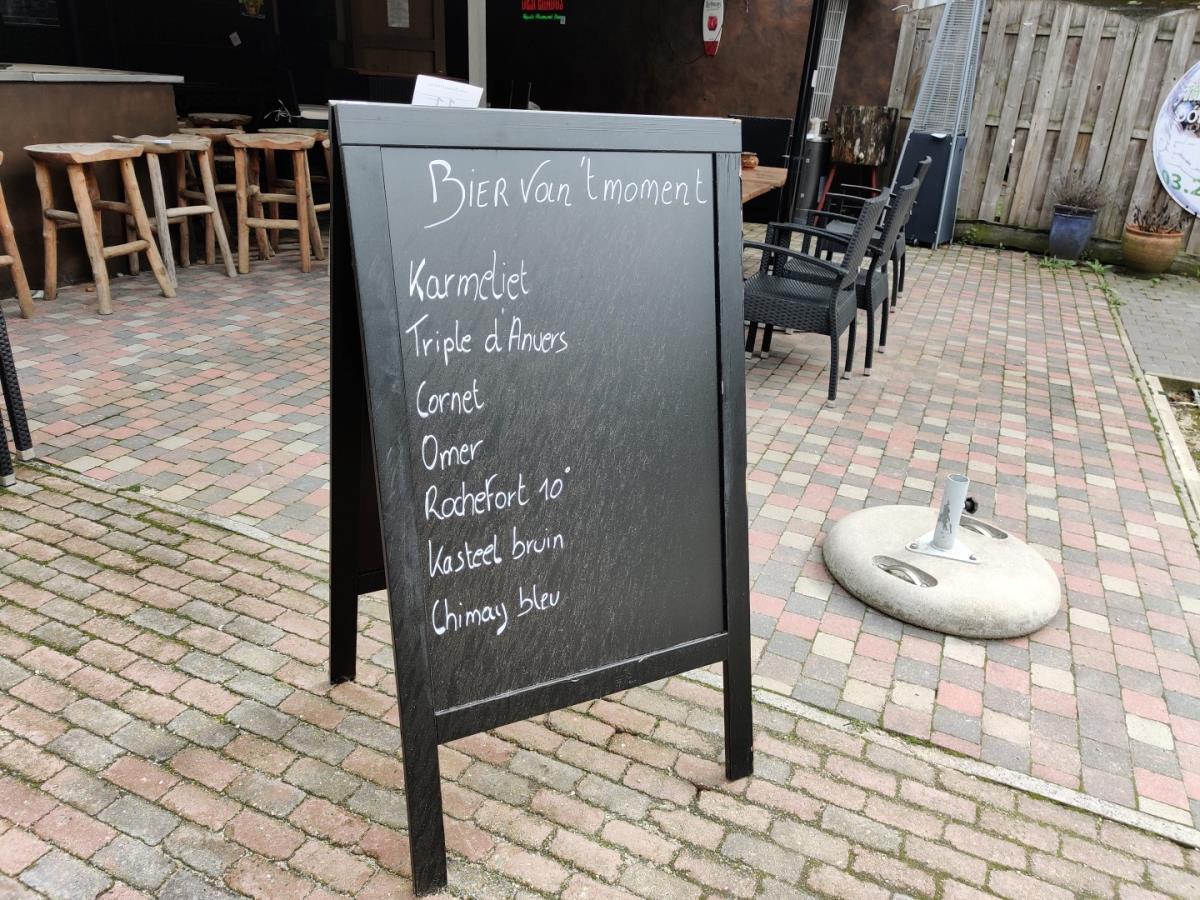 Bier van 't moment
Karmeliet
Triple d'Anvers
Cornet
Omer
Rochefort 10°
Kasteel bruin
Chimay bleu